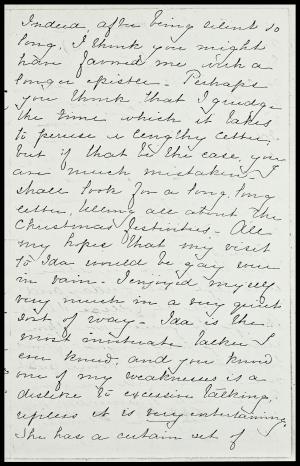 Indeed, after being silent so
long, I think you might
have favored me with a
longer epistle. Perhaps
you think that I grudge
the time which it takes
to peruse a lengthy letter,
but if that be the case, you
are much mistaken. I
shall look for a long, long
letter, telling all about the
Christmas festivities. All
my hopes that my visit
to Ida would be gay were
in vain. I enjoyed myself
very much in a very quiet
sort of way. Ida is the
most inveterate talker I
ever knew, and you know
one of my weaknesses is a
dislike to excessive talking,
unless it is very entertaining.
She has a certain set of